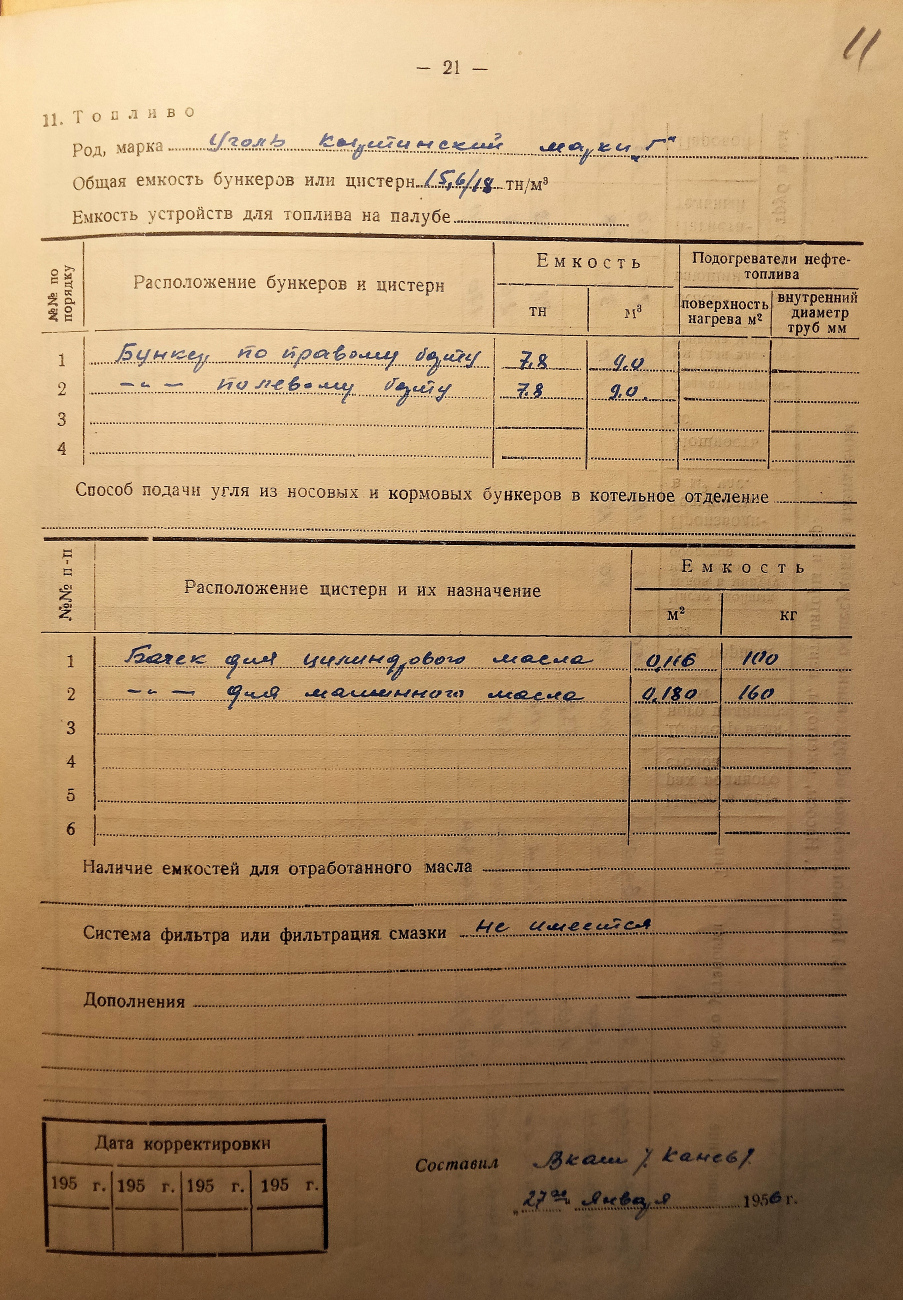 11
— 21 —
11. Топливо
Род, марка Уголь марки „Г"
Общая емкость бункеров или цистерн 15,6/18 тн/м³
Емкость устройств для топлива на палубе
№№ по порядку
Расположение бункеров и цистерн
Емкость
Подогреватели нефте-
топлива
тн
м³
поверхность нагрева м²
внутренний диаметр труб мм
1 Бункер по правому борту 7.8 9.0
2 —"— по левому борту 7.8 9.0
3
4
Способ подачи угля из носовых и кормовых бункеров в котельное отделение
№№ п-п
Расположение цистерн и их назначение
Емкость
м²
кг
1 Бачек для цилиндрового масла 0,116 100
2 —"— для машинного масла 0,180 160
3
4
5
6
Наличие емкостей для отработанного масла
Система фильтра или фильтрация смазки Не имеется
Дополнения
Дата корректировки
195 г. 195 г. 195 г. 195 г.
Составил
„27" января 1956 г.